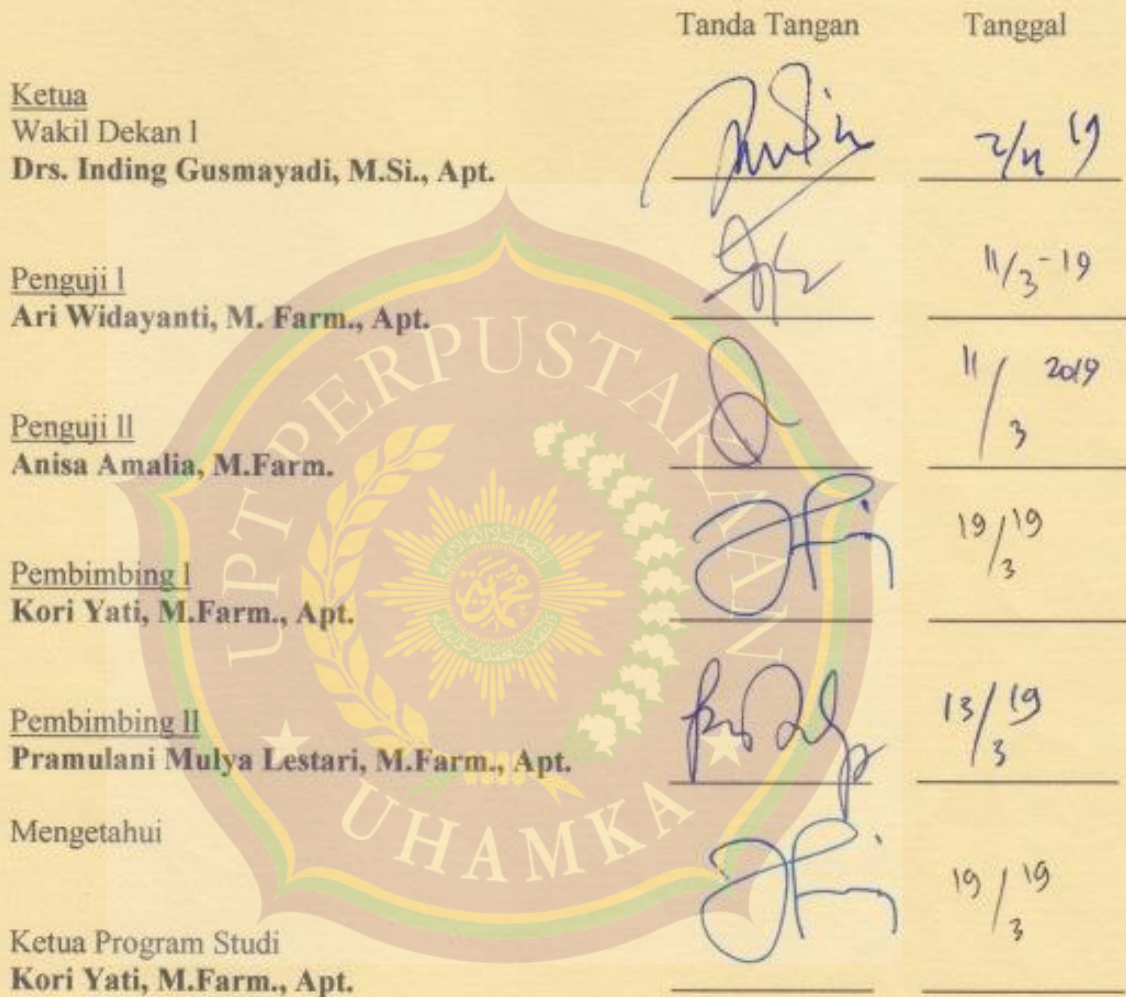 Tanda Tangan Tanggal
Ketua
Wakil Dekan I
Drs. Inding Gusmayadi, M.Si., Apt.
2/4 19
Penguji I
Ari Widayanti, M. Farm., Apt.
11/3-19
Penguji II
Anisa Amalia, M.Farm.
11/3 2019
Pembimbing I
Kori Yati, M.Farm., Apt.
19/3 19
Pembimbing II
Pramulani Mulya Lestari, M.Farm., Apt.
13/3 19
Mengetahui
Ketua Program Studi
Kori Yati, M.Farm., Apt.
19/3 19
UPT PERPUSTAKAAN
UHAMKA